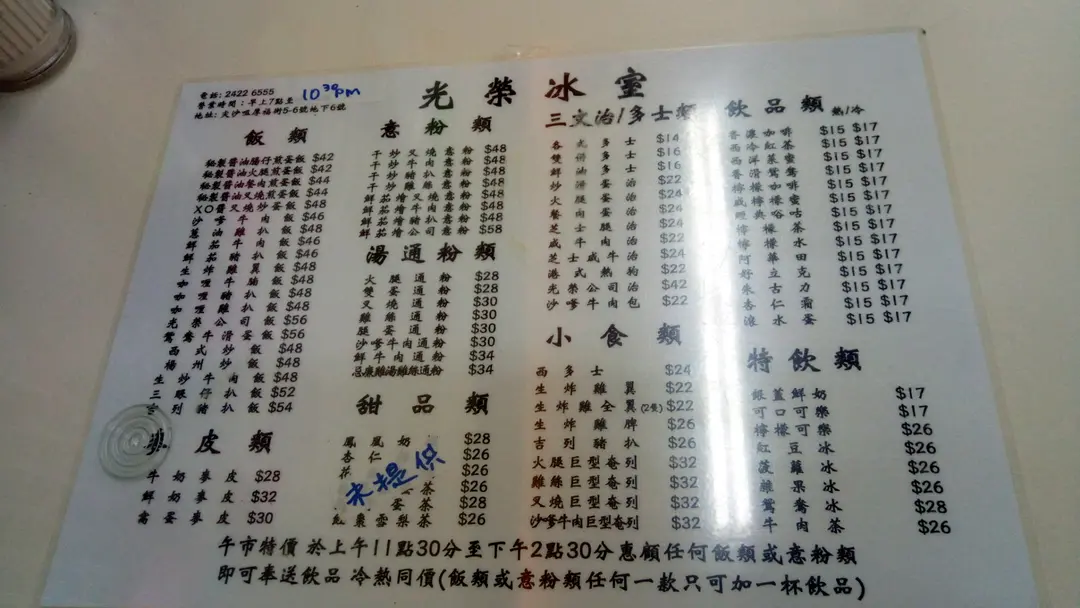 電話: 2422 6555
營業時間：早上7點至 10 30 PM
地址: 尖沙咀厚福街5-6號地下6號
光榮冰室
飯類
秘製醬油腸仔煎蛋飯 $42
秘製醬油火腿煎蛋飯 $42
秘製醬油餐肉煎蛋飯 $44
秘製醬油叉燒煎蛋飯 $44
XO醬叉燒炒蛋飯 $48
沙爹牛肉飯 $46
蔥油雞扒飯 $48
鮮茄牛肉飯 $46
鮮茄豬扒飯 $48
生炸雞翼飯 $48
咖喱牛腩飯 $48
咖喱豬扒飯 $48
咖喱雞扒飯 $48
光榮公司飯 $56
鴛鴦牛滑蛋飯 $56
西式炒飯 $48
楊州炒飯 $48
生炒牛肉飯 $48
三眼仔扒飯 $52
吉列豬扒飯 $54
麥皮類
牛奶麥皮 $28
鮮奶麥皮 $32
窩蛋麥皮 $30
意粉類
干炒叉燒意粉 $48
干炒牛肉意粉 $48
干炒豬扒意粉 $48
干炒雞絲意粉 $48
鮮茄燴牛肉意粉 $48
鮮茄燴豬扒意粉 $48
鮮茄燴公司意粉 $58
湯通粉類
火腿通粉 $28
雙蛋通粉 $28
叉燒通粉 $30
雞絲通粉 $30
腿蛋通粉 $30
沙爹牛肉通粉 $30
鮮牛肉通粉 $34
忌廉雞湯雞絲通粉 $34
甜品類
鳳凰奶 $28
杏仁 $26
$26
茶 $26
蛋茶 $28
紅棗雪梨茶 $26
未提供
三文治/多士類
各式多士 $14
雙多士 $16
鮮油多士 $16
炒滑蛋治 $22
火腿蛋治 $24
餐肉蛋治 $24
芝士腿治 $24
咸牛肉治 $22
芝士咸牛治 $24
港式熱狗 $22
光榮公司治 $42
沙爹牛肉包 $22
小食類
西多士 $24
生炸雞翼 $22
生炸雞全翼(2隻) $22
生炸雞脾 $26
吉列豬扒 $26
火腿巨型奄列 $32
雞絲巨型奄列 $32
叉燒巨型奄列 $32
沙爹牛肉巨型奄列 $32
飲品類 熱/冷
香濃咖啡 $15 $17
$15 $17
$15 $17
$15 $17
$15 $17
$15 $17
$15 $17
$15 $17
$15 $17
檸水 $15 $17
阿華田 $15 $17
好立克 $15 $17
朱古力 $15 $17
杏仁霜 $15 $17
滾水蛋 $15 $17
特飲類
銀蓋鮮奶 $17
可口可樂 $17
檸檬可樂 $26
紅豆冰 $26
菠蘿冰 $26
雜果冰 $26
鴛鴦冰 $28
牛肉茶 $26
午市特價 於上午11點30分至下午2點30分惠顧任何飯類或意粉類
即可奉送飲品 冷熱同價(飯類或意粉類任何一款只可加一杯飲品)